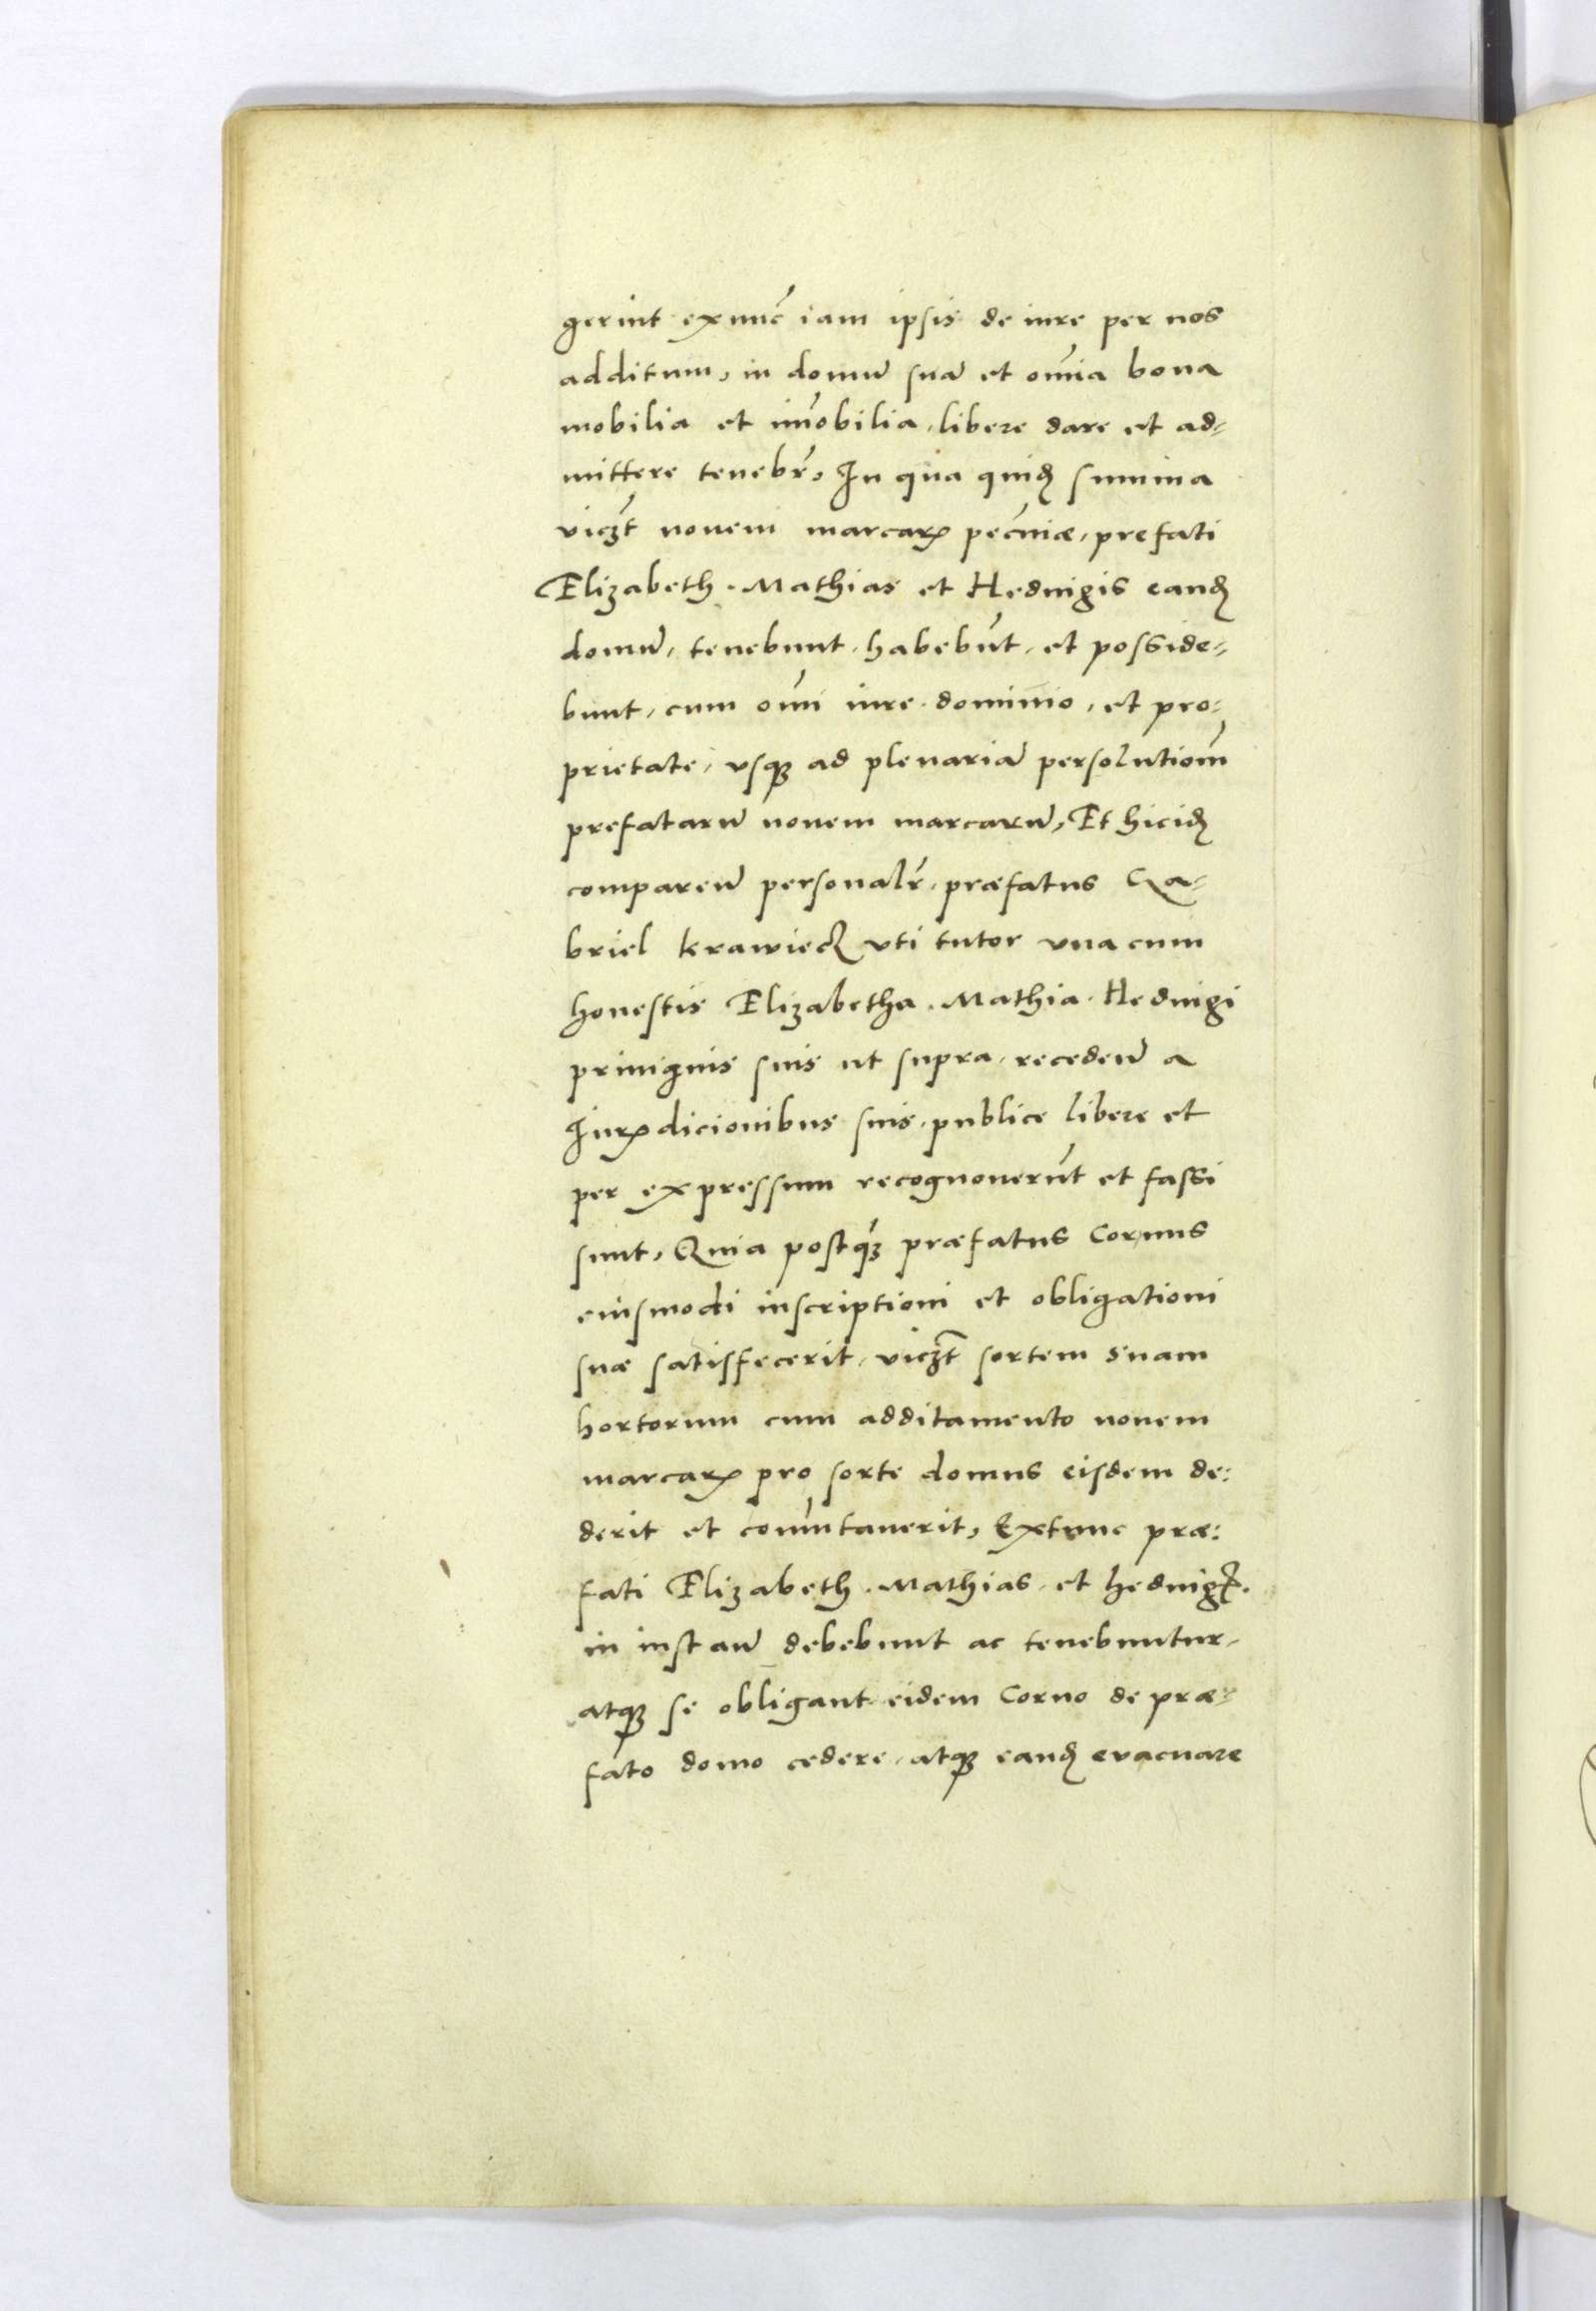 gerint exnūc iam ipsis de iure per nos
additum, in domū suā et om̄ia bona
mobilia et im̄obilia, libere dare et ad-
mittere tenebr̄, In qua quidꝫ summa
vicꝫt novem marcaꝝ pecūiæ, prefati
Elizabeth. Mathias et Heduigis eandꝫ
domū, tenebunt, habebūt, et posside-
bunt, cum om̄i iure dominio, et pro-
prietate, vsqꝫ ad plenariā persolutiom̄
prefatarū nouem marcarū, Et hicidꝫ
comparen̄ personalr̄, præfatus Ga-
briel krawiecz vti tutor vna cum
honestis Elizabetha. Mathia. Heduigi
priuignis suis ut supra, receden̄ a
Iuꝝdicionibus suis, publice libere et
per expressum recognouerūt et fassi
sunt, Quia postqꝫ præfatus Cornus
eiusmodi inscriptioni et obligationi
suæ satisfecerit, vicꝫt sortem suam
hortorum cum additamento nouem
marcaꝝ pro sorte domus eisdem de:
derit et com̄utauerit, Extunc præ:
fati Elizabeth. Mathias, et heduigꝭ.
in instan̄ debebunt ac tenebuntur,
atqꝫ se obligant eidem Corno de præ-
fato domo cedere, atqꝫ eandꝫ evacuare